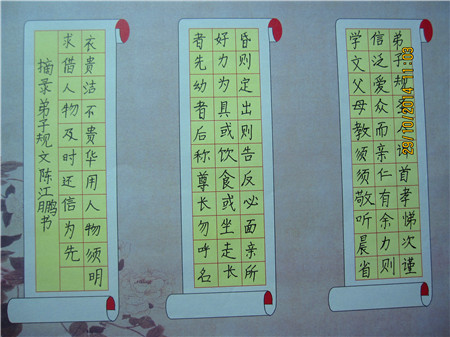 弟子规圣人训首孝悌次谨
信泛爱众而亲仁有余力则
学文父母教须须敬听晨省
昏则定出则告反必面亲所
好力为具或饮食或坐走长
者先幼者后称尊长勿呼名
衣贵洁不贵华用人物须明
求借人物及时还信为先
摘录弟子规文陈江鹏书
29/10/2014 11:03